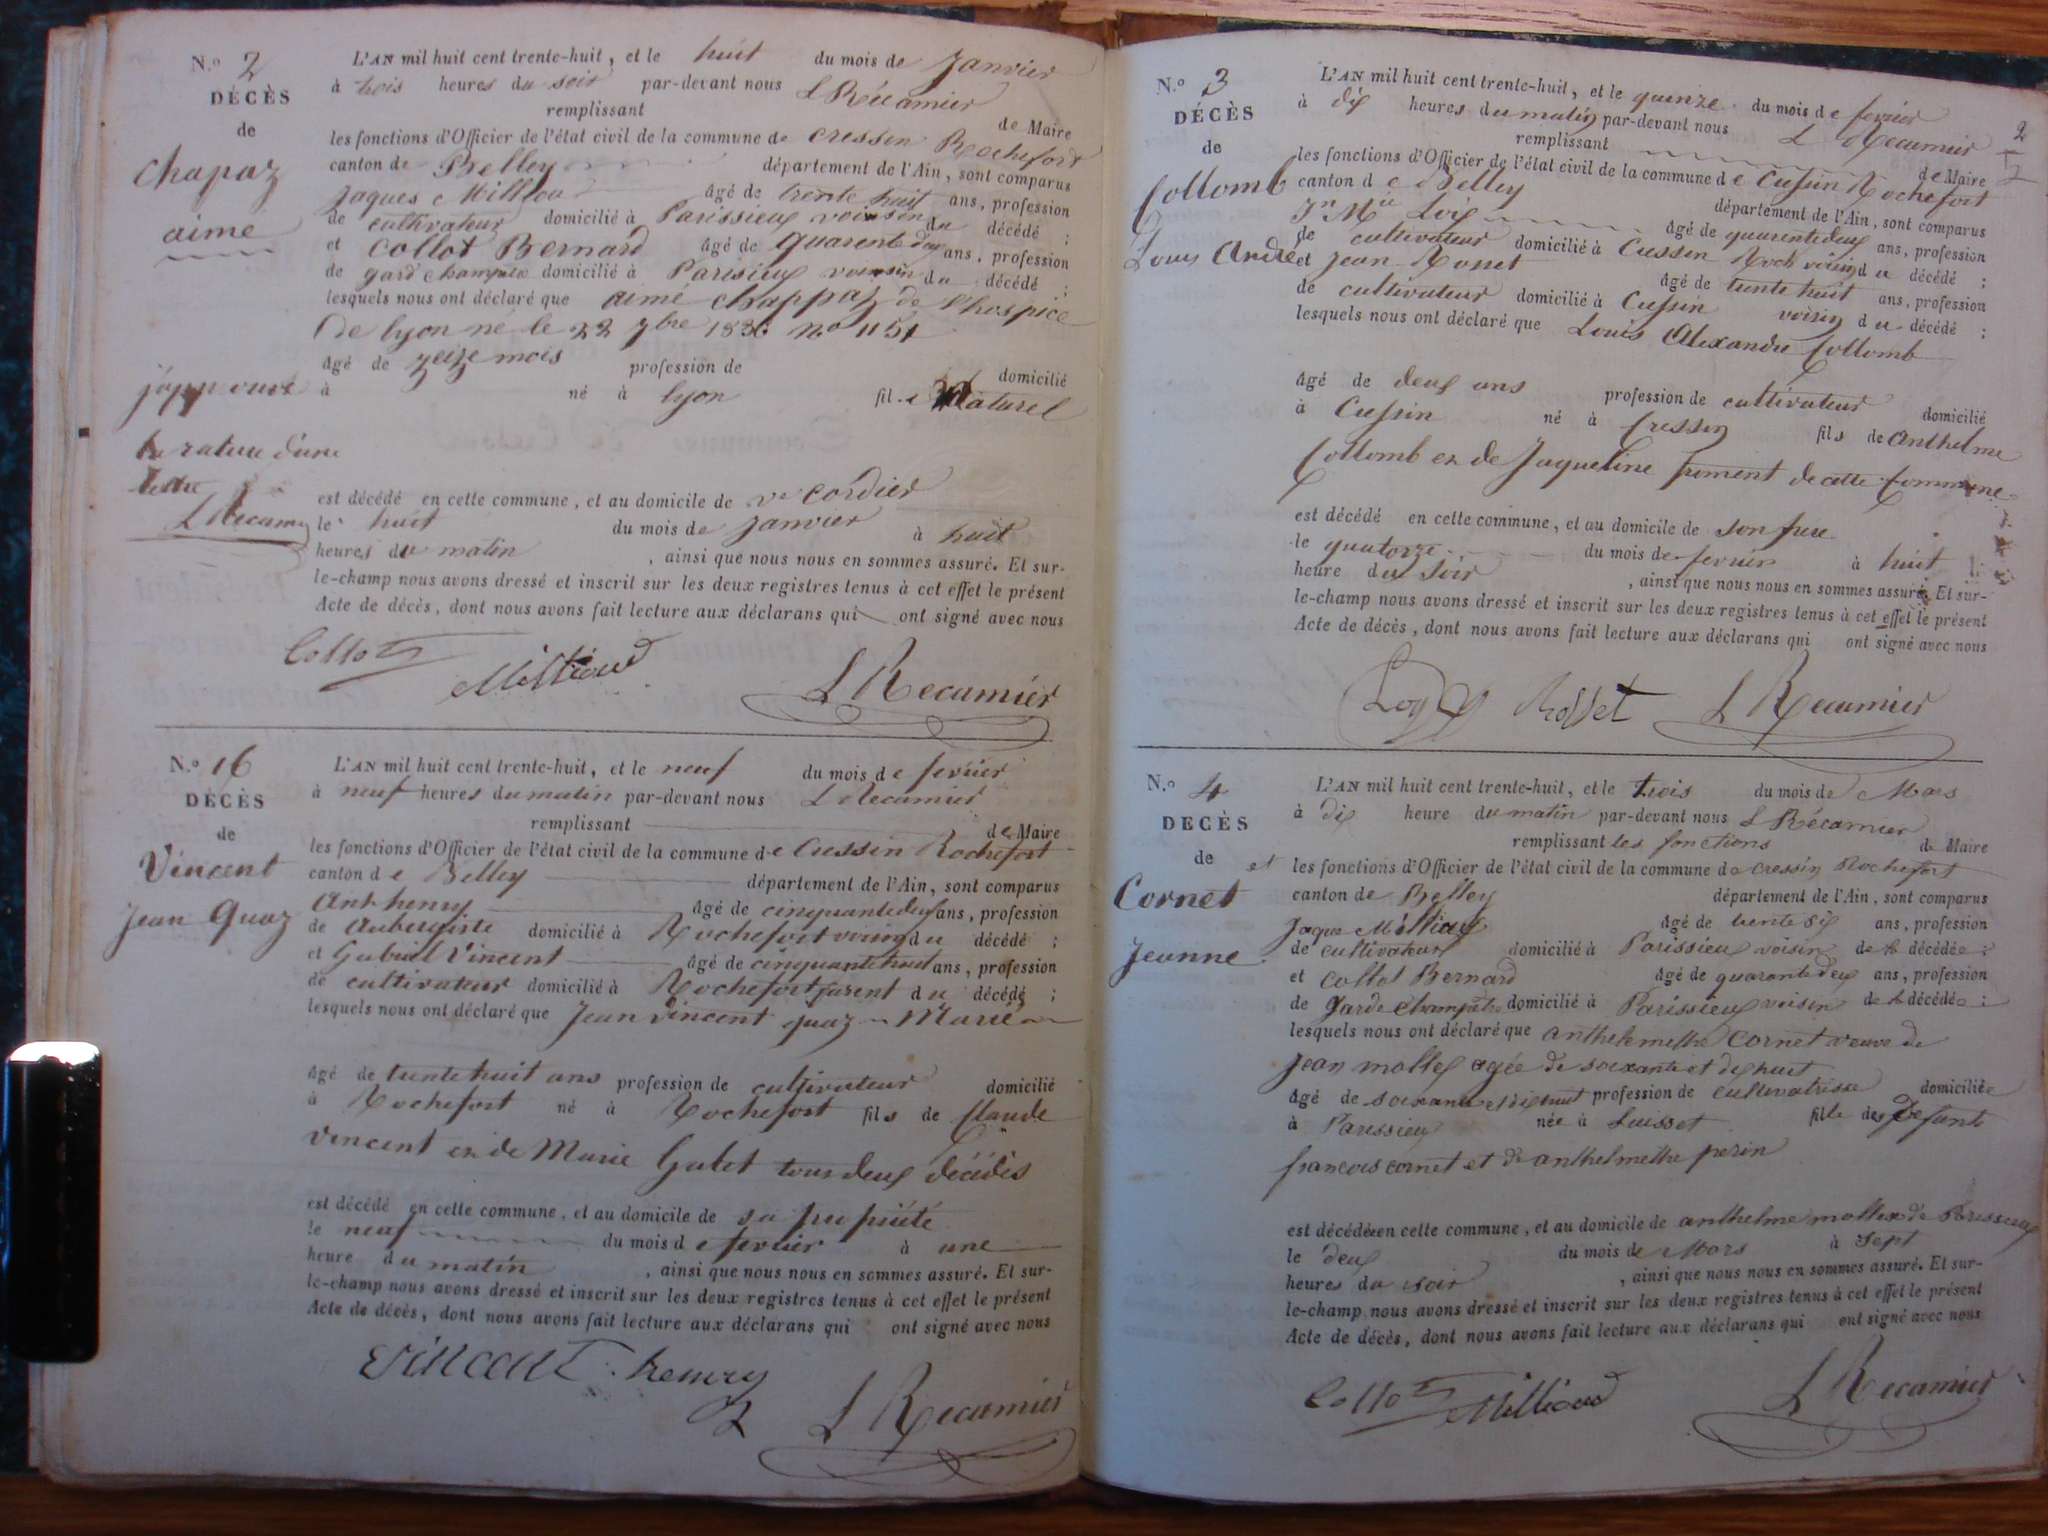 N.º 2
DÉCÈS
de
chapaz
aimé
j'approuve
la rature d'une
lettre
L Recamier
L'AN mil huit cent trente-huit, et le huit du mois de Janvier
à trois heures du soir par-devant nous L Récamier
remplissant de Maire
les fonctions d'Officier de l'état civil de la commune de cressin Rochefort
canton de Belley département de l'Ain, sont comparus
Jaques Milliou âgé de trente huit ans, profession
de cultivateur domicilié à Parissieu voisin du décédé ;
et Collot Bernard âgé de quarente deux ans, profession
de gard champetre domicilié à Parisieu voisin du décédé ;
lesquels nous ont déclaré que aimé chappaz de l'hospice
de lyon né le 22 7bre 1836 no 1151
âgé de seize mois profession de domicilié
à né à lyon fil. naturel
est décédé en cette commune, et au domicile de ve cordier
le huit du mois de janvier à huit
heures du matin , ainsi que nous nous en sommes assuré. Et sur-
le-champ nous avons dressé et inscrit sur les deux registres tenus à cet effet le présent
Acte de décès, dont nous avons fait lecture aux déclarans qui ont signé avec nous
Collot Millioud L Recamier
N.º 16
DÉCÈS
de
Vincent
Jean Quaz
L'AN mil huit cent trente-huit, et le neuf du mois de fevrier
à neuf heures du matin par-devant nous L Recamier
remplissant de Maire
les fonctions d'Officier de l'état civil de la commune de Cressin Rochefort
canton de Belley département de l'Ain, sont comparus
Ant henry âgé de cinquante deux ans, profession
de Aubergiste domicilié à Rochefort voisin du décédé ;
et Gabriel Vincent âgé de cinquante huit ans, profession
de cultivateur domicilié à Rochefort parent du décédé ;
lesquels nous ont déclaré que Jean Vincent quaz Marié
âgé de trente huit ans profession de cultivateur domicilié
à Rochefort né à Rochefort fils de Claude
Vincent et de Marie Gabet tous deux décédés
est décédé en cette commune, et au domicile de sa propriété
le neuf du mois de fevrier à une
heure du matin , ainsi que nous nous en sommes assuré. Et sur-
le-champ nous avons dressé et inscrit sur les deux registres tenus à cet effet le présent
Acte de décès, dont nous avons fait lecture aux déclarans qui ont signé avec nous
Vincent henry L Recamier
2
N.º 3
DÉCÈS
de
Collomb
Louis André
L'AN mil huit cent trente-huit, et le quinze du mois de fevrier
à dix heures du matin par-devant nous L Recamier
remplissant de Maire
les fonctions d'Officier de l'état civil de la commune de Cressin Rochefort
canton de Belley département de l'Ain, sont comparus
Jn Mie Loix âgé de quarente deux ans, profession
de cultivateur domicilié à Cressin Roch voisin du décédé ;
et Jean Rosset âgé de trente huit ans, profession
de cultivateur domicilié à Cressin voisin du décédé ;
lesquels nous ont déclaré que Louis Alexandre Collomb
âgé de deux ans profession de cultivateur domicilié
à Cressin né à Cressin fils de Anthelme
Collomb et de Jaqueline froment de cette Commune
est décédé en cette commune, et au domicile de son pere
le quatorze du mois de fevrier à huit
heure du soir , ainsi que nous nous en sommes assuré. Et sur-
le-champ nous avons dressé et inscrit sur les deux registres tenus à cet effet le présent
Acte de décès, dont nous avons fait lecture aux déclarans qui ont signé avec nous
Rosset L Recamier
N.º 4
DECÈS
de
Cornet
Jeanne
L'AN mil huit cent trente-huit, et le trois du mois de Mars
à dix heure du matin par-devant nous L Récamier
remplissant les fonctions de Maire
et les fonctions d'Officier de l'état civil de la commune de cressin Rochefort
canton de Belley département de l'Ain, sont comparus
Jaque Millioux âgé de trente six ans, profession
de cultivateur domicilié à Parissieu voisin de la décédée ;
et Collot Bernard âgé de quarante deux ans, profession
de garde champêtre domicilié à Parissieu voisin de la décédée ;
lesquels nous ont déclaré que anthelmette Cornet veuve de
jean mollex agée de soixante et dix huit
âgé de soixante et dix huit profession de cultivatrisse domiciliée
à Parissieu née à Luisset fille des defunts
francois cornet et de anthelmette perin
est décédée en cette commune, et au domicile de anthelme mollex de Parissieu
le deux du mois de Mars à sept
heures du soir , ainsi que nous nous en sommes assuré. Et sur-
le-champ nous avons dressé et inscrit sur les deux registres tenus à cet effet le présent
Acte de décès, dont nous avons fait lecture aux déclarans qui ont signé avec nous
Collot Millioud L Recamier